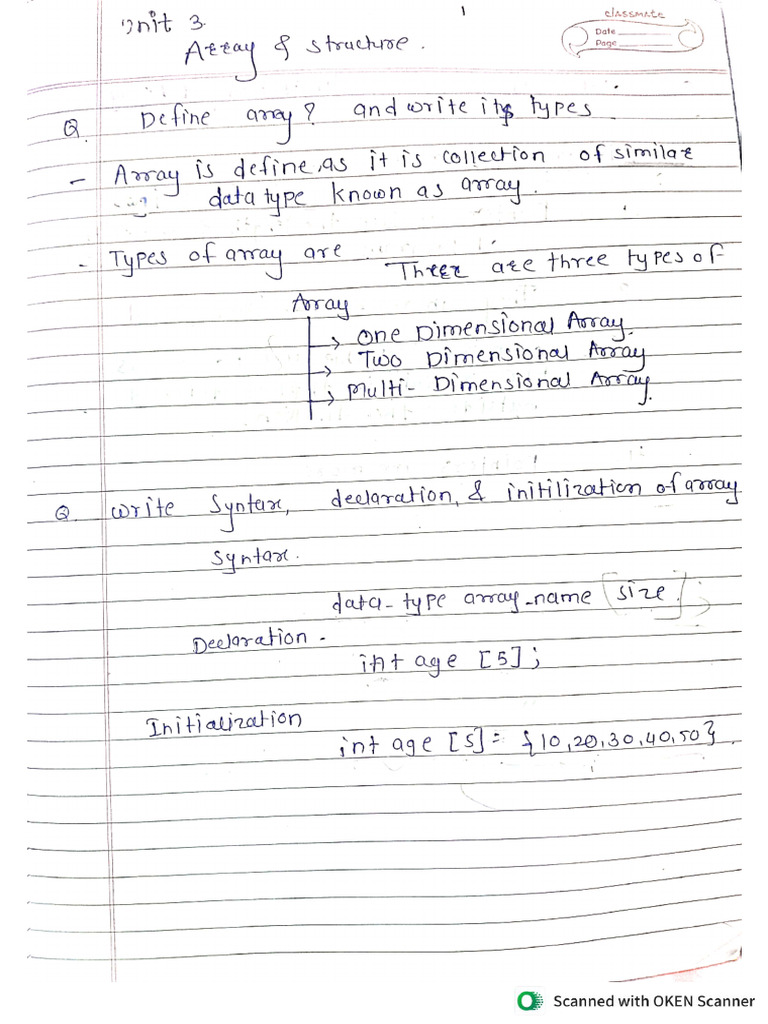 Unit 3.
1
classmate
Date
Page
Array & structure.
Q. Define array? and write its types
- Array is define, as it is collection of similar
data type known as array.
- Types of array are
There are three types of
Array
→ One Dimensional Array.
→ Two Dimensional Array
→ Multi- Dimensional Array.
Q. write Syntax, declaration, & initilization of array
Syntax.
data-type array-name [size];
Declaration -
int age [5];
Initialization
int age [5] = {10,20,30,40,50}.
Scanned with OKEN Scanner